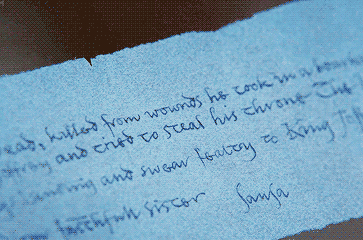 ead, killed from wounds he took in a
and tried to steal his throne The
and swear fealty to King
faithfull sister Sansa